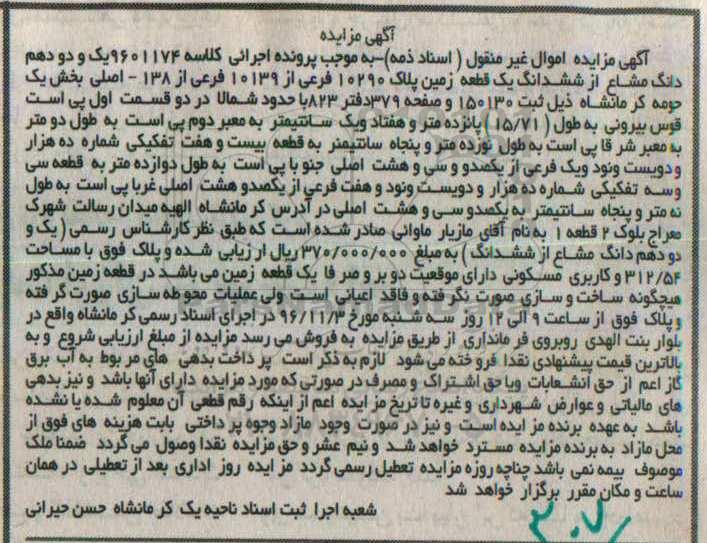 آگهی مزایده
آگهی مزایده اموال غیر منقول ( اسناد ذمه)–به موجب پرونده اجرائی کلاسه ۹۶۰۱۱۷۴یک و دو دهم
دانگ مشاع از ششدانگ یک قطعه زمین پلاک ۱۰۲۹۰ فرعی از ۱۰۱۳۹ فرعی از ۱۳۸ - اصلی بخش یک
حومه کر مانشاه ذیل ثبت ۱۵۰۱۳۰ و صفحه ۳۷۹دفتر ۸۲۳با حدود شمالا در دو قسمت اول پی است
قوس بیرونی به طول ( ۱۵/۷۱) پانزده متر و هفتاد ویک سانتیمتر به معبر دوم پی است به طول دو متر
به معبر شر قا پی است به طول نوزده متر و پنجاه سانتیمتر به قطعه بیست و هفت تفکیکی شماره ده هزار
و دویست ونود ویک فرعی از یکصدو و سی و هشت اصلی جنو با پی است به طول دوازده متر به قطعه سی
و سه تفکیکی شماره ده هزار و دویست ونود و هفت فرعی از یکصدو هشت اصلی غربا پی است به طول
نه متر و پنجاه سانتیمتر به یکصدو سی و هشت اصلی در آدرس کر مانشاه الهیه میدان رسالت شهرک
معراج بلوک ۲ قطعه ۱ به نام آقای مازیار ماوانی صادر شده است که طبق نظر کارشناس رسمی ( یک و
دو دهم دانگ مشاع از ششدانگ ) به مبلغ ۳۷۰/۰۰۰/۰۰۰ ریال ار زیابی شده و پلاک فوق با مساحت
۳۱۲/۵۴ و کاربری مسکونی دارای موقعیت دو بر و صر فا یک قطعه زمین می باشد در قطعه زمین مذکور
هیچگونه ساخت و سازی صورت نگر فته و فاقد اعیانی است ولی عملیات محو طه سازی صورت گر فته
و پلاک فوق از ساعت ۹ الی ۱۲ روز سه شنبه مورخ ۹۶/۱۱/۳ در اجرای اسناد رسمی کر مانشاه واقع در
بلوار بنت الهدی روبروی فر مانداری از طریق مزایده به فروش می رسد مزایده از مبلغ ارزیابی شروع و به
بالاترین قیمت پیشنهادی نقدا فرو خته می شود لازم به ذکر است پر داخت بدهی های مر بوط به آب برق
گاز اعم از حق انشعابات ویا حق اشتراک و مصرف در صورتی که مورد مزایده دارای آنها باشد و نیز بدهی
های مالیاتی و عوارض شهرداری و غیره تا تریخ مز ایده اعم از اینکه رقم قطعی آن معلوم شده یا نشده
باشد به عهده برنده مز ایده است و نیز در صورت وجود مازاد وجوه پر داختی بابت هزینه های فوق از
محل مازاد به برنده مزایده مسترد خواهد شد و نیم عشر و حق مزایده نقدا وصول می گردد ضمنا ملک
موصوف بیمه نمی باشد چناچه روزه مزایده تعطیل رسمی گردد مز ایده روز اداری بعد از تعطیلی در همان
ساعت و مکان مقرر برگزار خواهد شد
شعبه اجرا ثبت اسناد ناحیه یک کر مانشاه حسن حیرانی